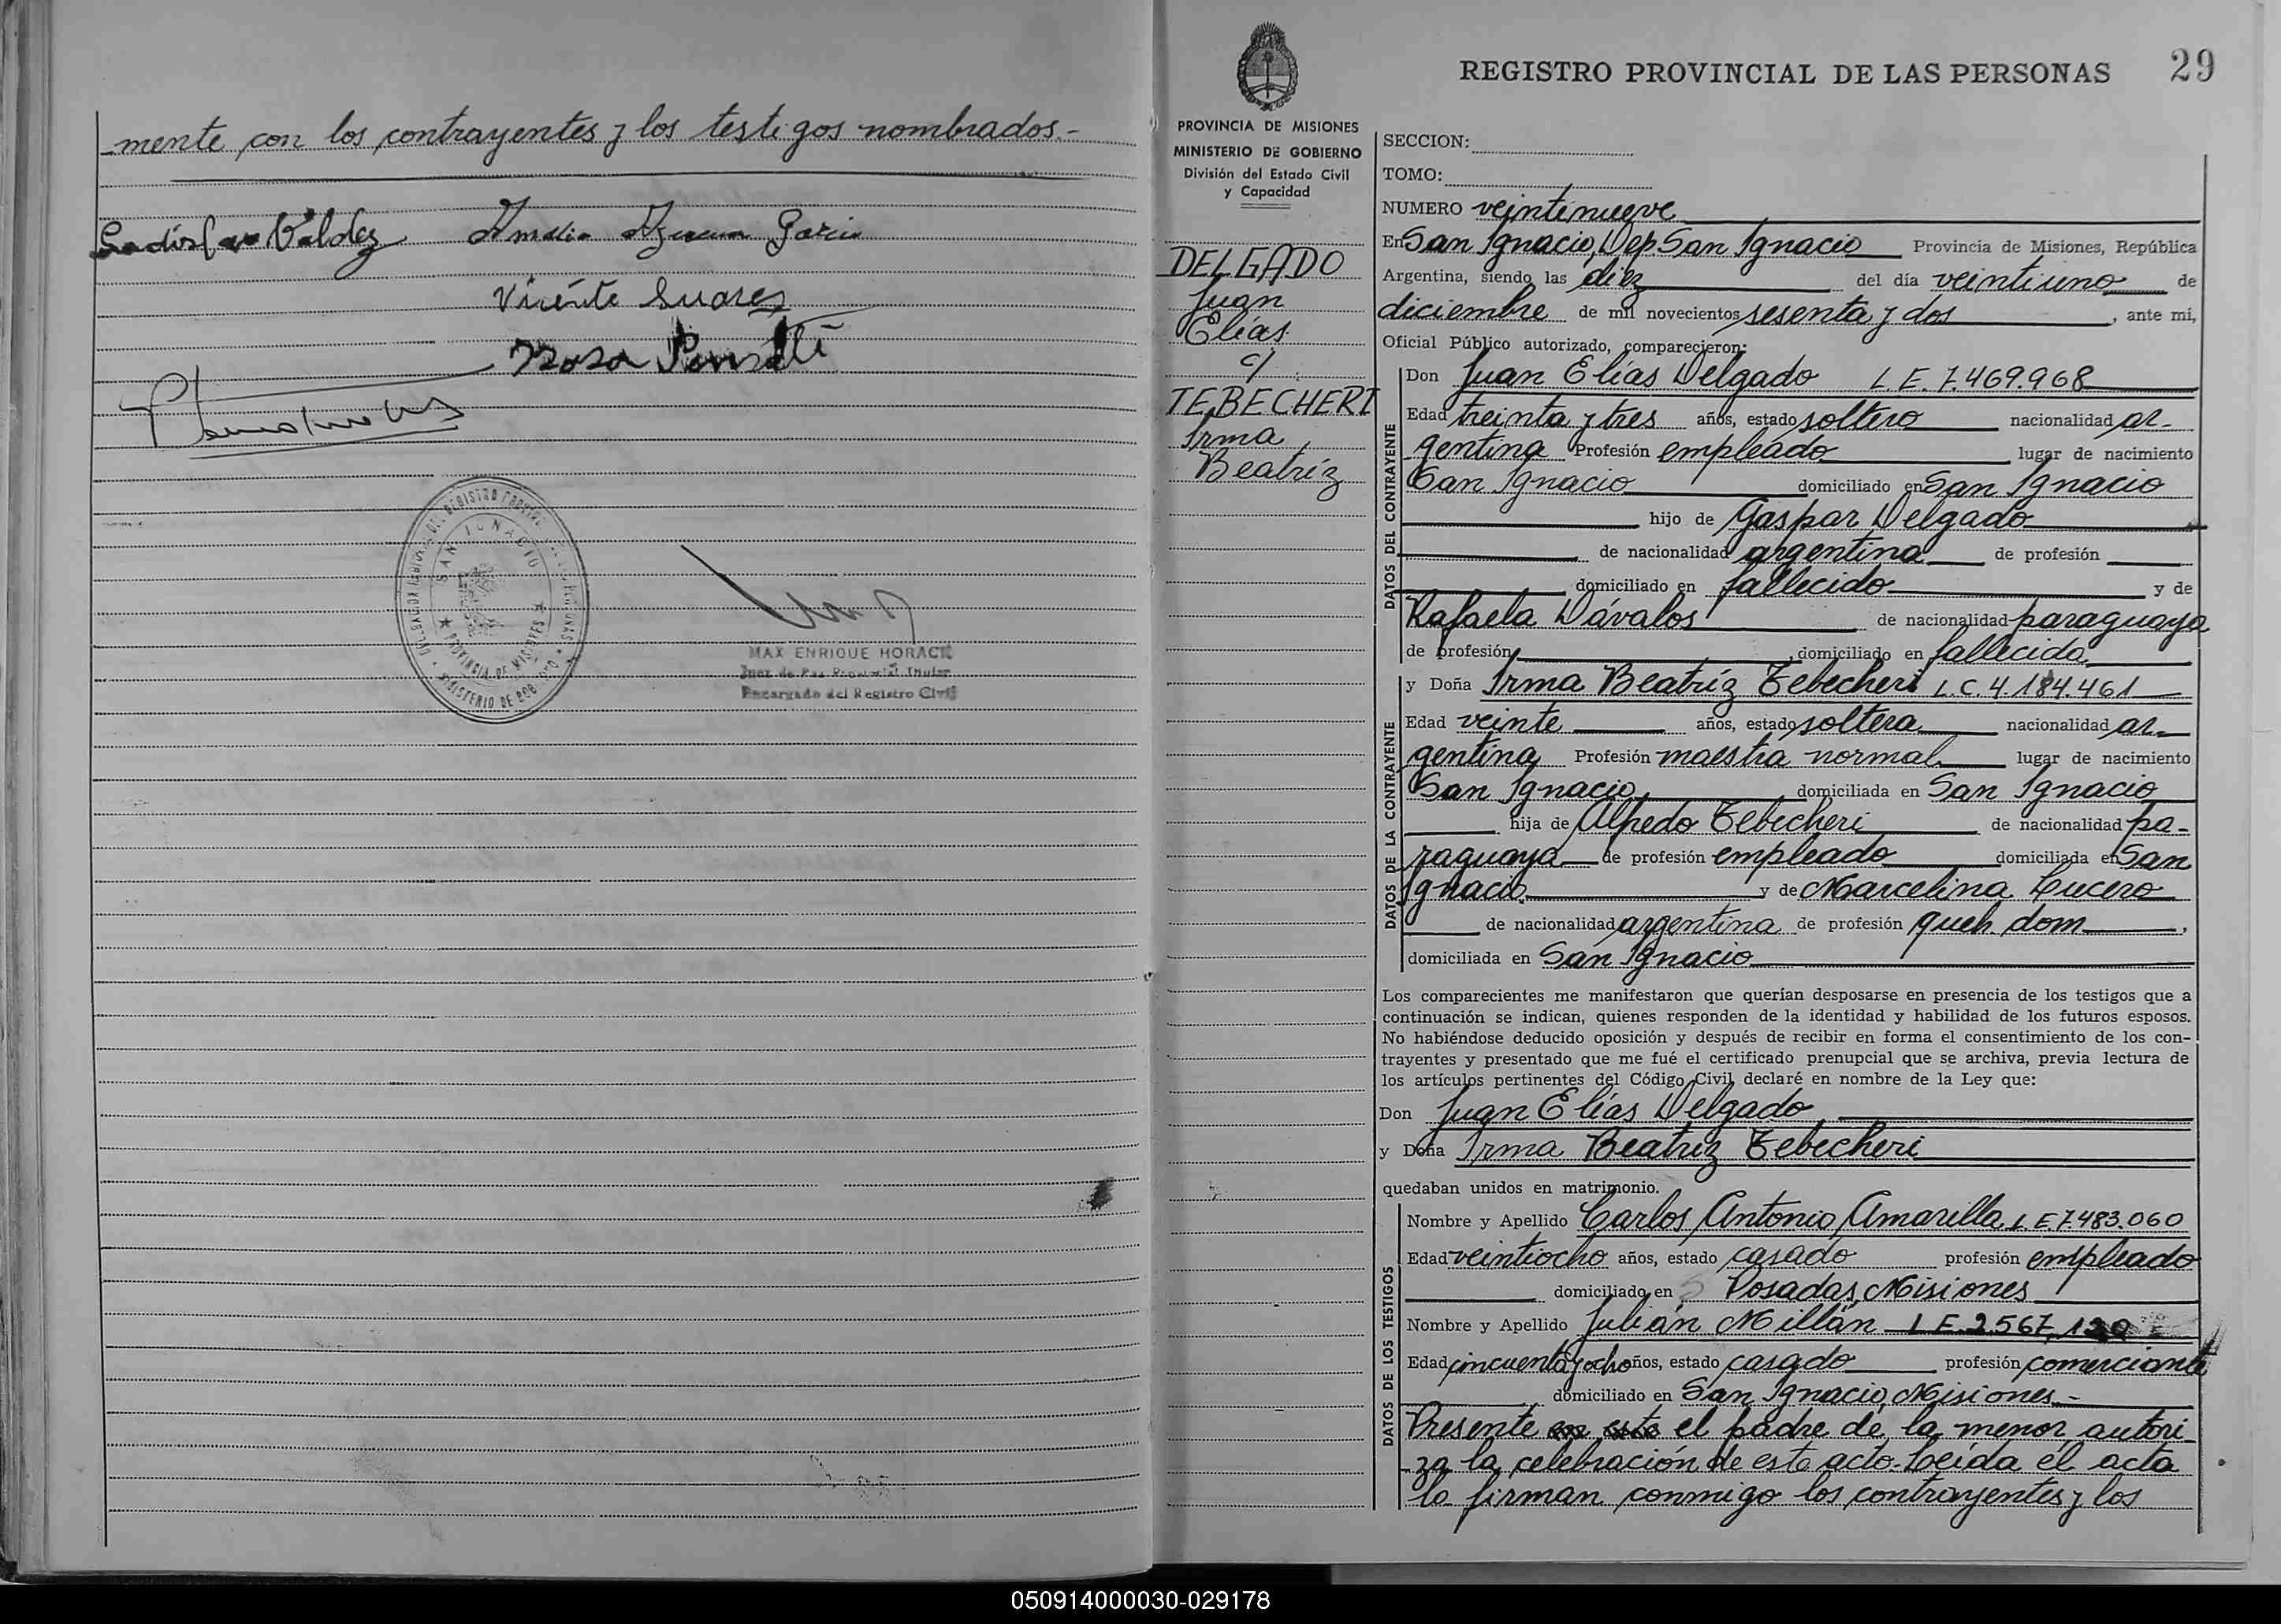 mente con los contrayentes y los testigos nombrados.-
Ladislao Valdez Amalia Azucena Garcia
Vicente Suarez
Rosa
SAN IGNACIO
PROVINCIA DE MISIONES
MINISTERIO DE GOBIERNO
MAX ENRIQUE HORACIO
Juez de Paz Provincial Titular
Encargado del Registro Civil
REGISTRO PROVINCIAL DE LAS PERSONAS 29
PROVINCIA DE MISIONES
MINISTERIO DE GOBIERNO
División del Estado Civil
y Capacidad
DELGADO
Juan
Elías
c/
TEBECHERI
Irma
Beatríz
SECCION:
TOMO:
NUMERO veintinueve
En San Ignacio, Dep. San Ignacio Provincia de Misiones, República
Argentina, siendo las diez del día veintiuno de
diciembre de mil novecientos sesenta y dos, ante mi,
Oficial Público autorizado, comparecieron:
DATOS DEL CONTRAYENTE
Don Juan Elías Delgado L.E. 7.469.968
Edad treinta y tres años, estado soltero nacionalidad ar-
gentina Profesión empleado lugar de nacimiento
San Ignacio domiciliado en San Ignacio
hijo de Gaspar Delgado
de nacionalidad argentina de profesión
domiciliado en fallecido y de
Rafaela Dávalos de nacionalidad paraguaya
de profesión, domiciliado en fallecida
DATOS DE LA CONTRAYENTE
y Doña Irma Beatríz Tebecheri L.C. 4.184.461
Edad veinte años, estado soltera nacionalidad ar-
gentina Profesión maestra normal lugar de nacimiento
San Ignacio, domiciliada en San Ignacio
hija de Alfredo Tebecheri de nacionalidad pa-
raguaya de profesión empleado domiciliada en San
Ignacio y de Marcelina Lucero
de nacionalidad argentina de profesión queh. dom.
domiciliada en San Ignacio
Los comparecientes me manifestaron que querían desposarse en presencia de los testigos que a
continuación se indican, quienes responden de la identidad y habilidad de los futuros esposos.
No habiéndose deducido oposición y después de recibir en forma el consentimiento de los con-
trayentes y presentado que me fué el certificado prenupcial que se archiva, previa lectura de
los artículos pertinentes del Código Civil, declaré en nombre de la Ley que:
Don Juan Elías Delgado
y Doña Irma Beatríz Tebecheri
quedaban unidos en matrimonio.
DATOS DE LOS TESTIGOS
Nombre y Apellido Carlos Antonio Amarilla L.E. 7.483.060
Edad veintiocho años, estado casado profesión empleado
domiciliado en Posadas, Misiones
Nombre y Apellido Julián Millán L.E. 2.567.
Edad cincuenta y ocho años, estado casado profesión comerciante
domiciliado en San Ignacio, Misiones.-
Presente el padre de la menor autori-
za la celebración de este acto. Leída el acta
la firman conmigo los contrayentes y los
050914000030-029178